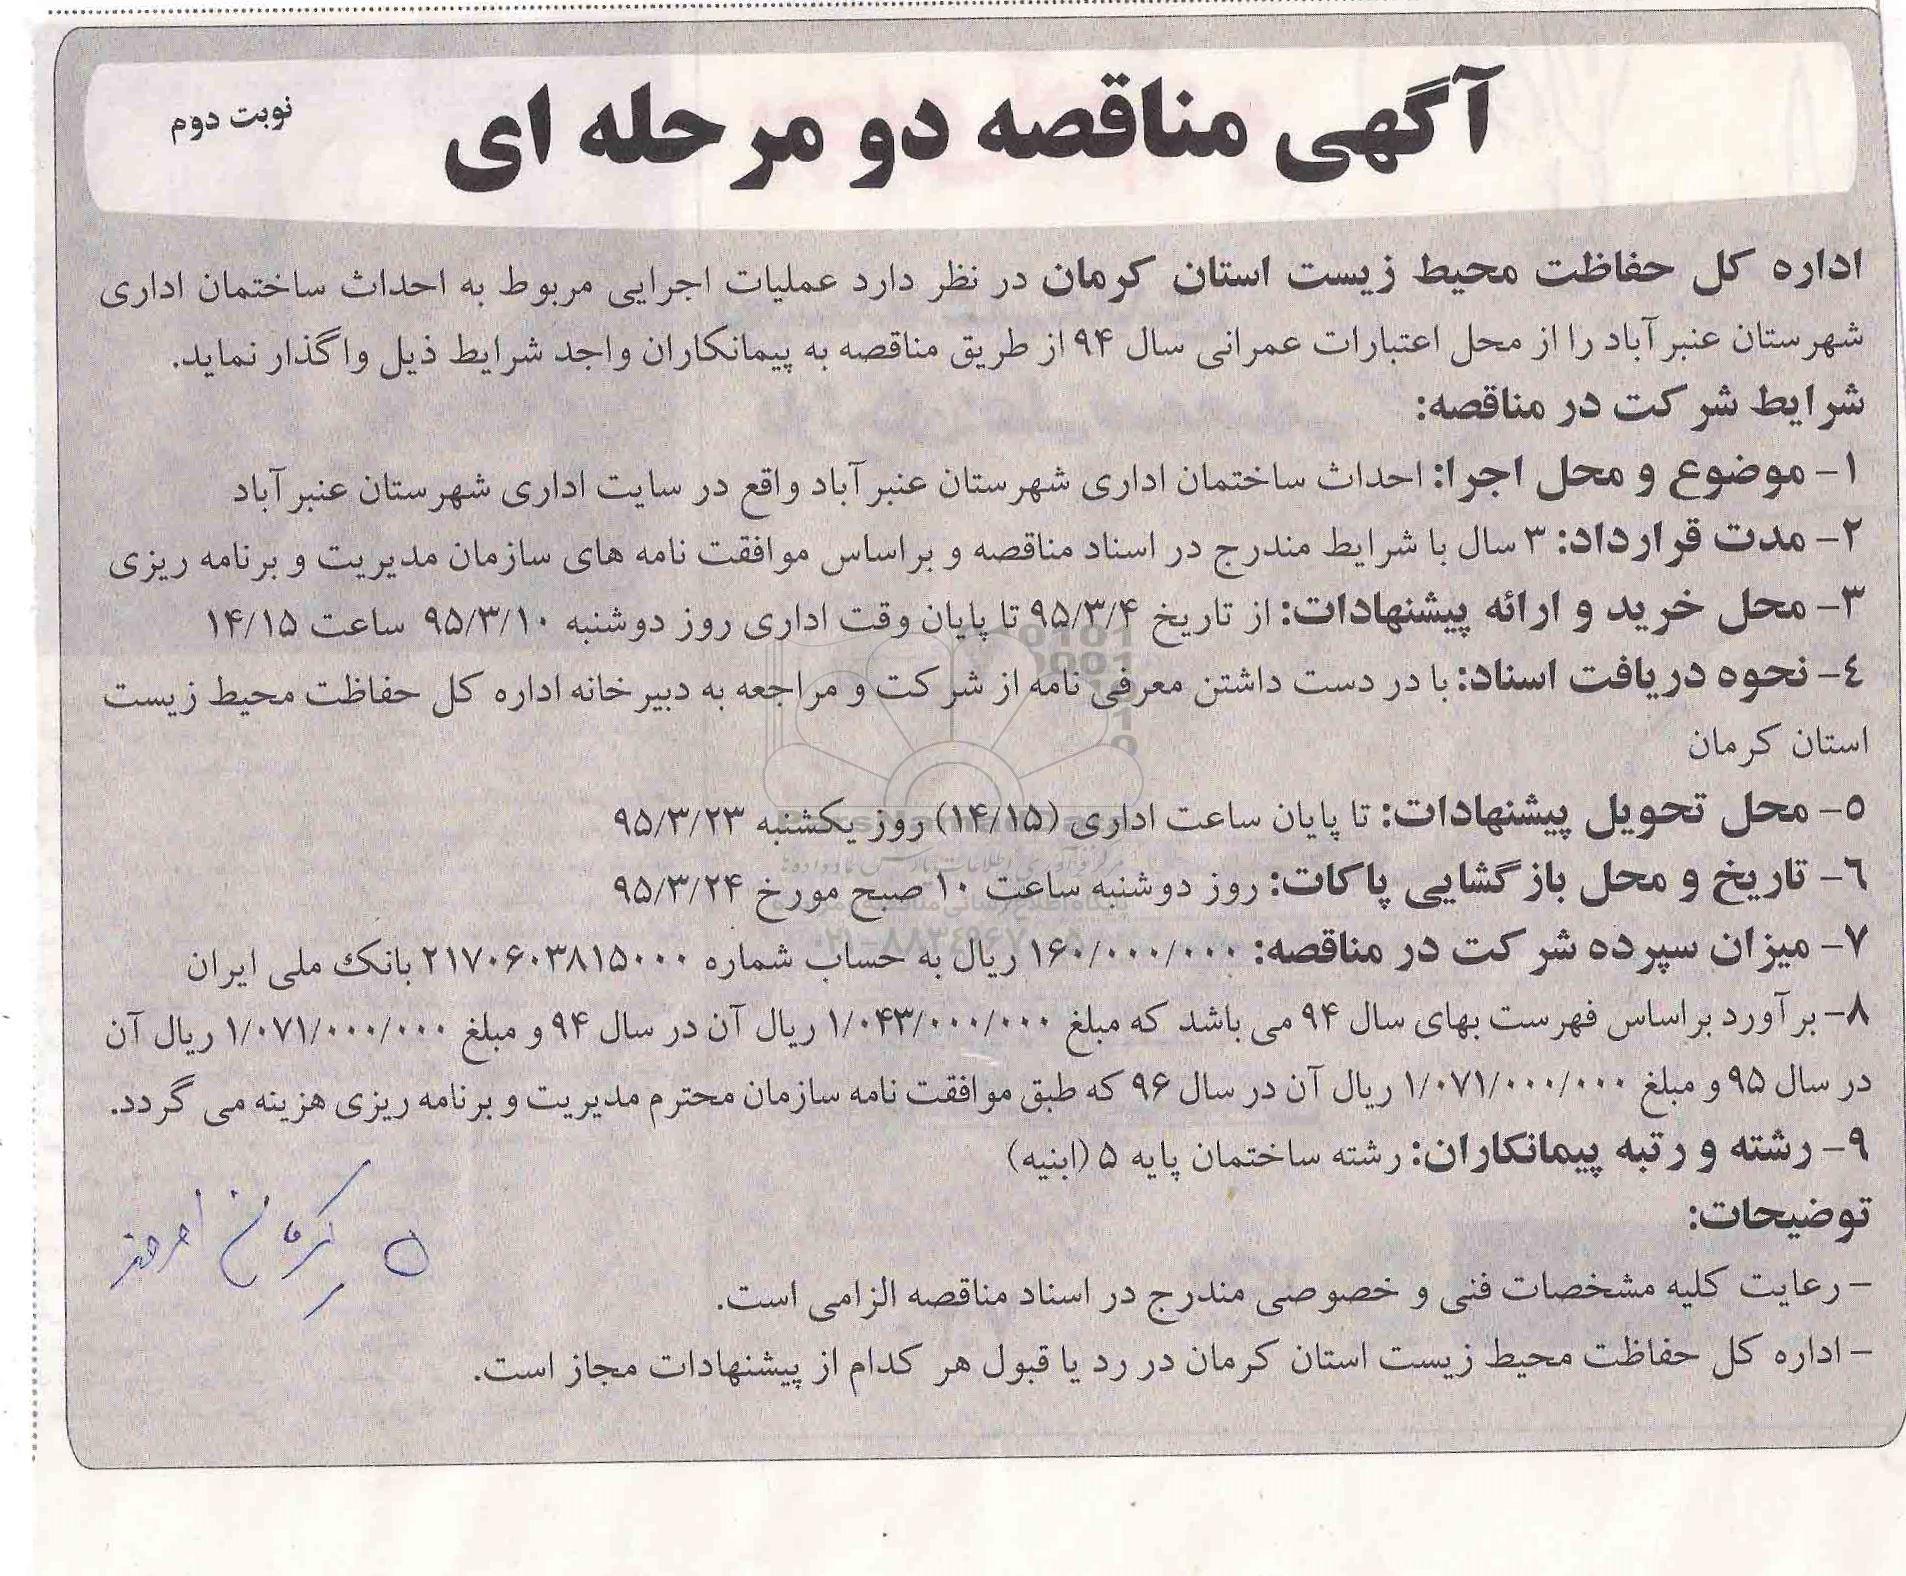 آگهی مناقصه دو مرحله ای
نوبت دوم
اداره کل حفاظت محیط زیست استان کرمان در نظر دارد عملیات اجرایی مربوط به احداث ساختمان اداری
شهرستان عنبرآباد را از محل اعتبارات عمرانی سال ۹۴ از طریق مناقصه به پیمانکاران واجد شرایط ذیل واگذار نماید.
شرایط شرکت در مناقصه:
۱- موضوع و محل اجرا: احداث ساختمان اداری شهرستان عنبرآباد واقع در سایت اداری شهرستان عنبرآباد
۲- مدت قرارداد: ۳ سال با شرایط مندرج در اسناد مناقصه و براساس موافقت نامه های سازمان مدیریت و برنامه ریزی
۳- محل خرید و ارائه پیشنهادات: از تاریخ ۹۵/۳/۴ تا پایان وقت اداری روز دوشنبه ۹۵/۳/۱۰ ساعت ۱۴/۱۵
۴- نحوه دریافت اسناد: با در دست داشتن معرفی نامه از شرکت و مراجعه به دبیرخانه اداره کل حفاظت محیط زیست
استان کرمان
۵- محل تحویل پیشنهادات: تا پایان ساعت اداری (۱۴/۱۵) روز یکشنبه ۹۵/۳/۲۳
۶- تاریخ و محل بازگشایی پاکات: روز دوشنبه ساعت ۱۰ صبح مورخ ۹۵/۳/۲۴
۷- میزان سپرده شرکت در مناقصه: ۱۶۰/۰۰۰/۰۰۰ ریال به حساب شماره ۲۱۷۰۶۰۳۸۱۵۰۰۰ بانک ملی ایران
۸- برآورد براساس فهرست بهای سال ۹۴ می باشد که مبلغ ۱/۰۴۳/۰۰۰/۰۰۰ ریال آن در سال ۹۴ و مبلغ ۱/۰۷۱/۰۰۰/۰۰۰ ریال آن
در سال ۹۵ و مبلغ ۱/۰۷۱/۰۰۰/۰۰۰ ریال آن در سال ۹۶ که طبق موافقت نامه سازمان محترم مدیریت و برنامه ریزی هزینه می گردد.
۹- رشته و رتبه پیمانکاران: رشته ساختمان پایه ۵ (ابنیه)
توضیحات:
- رعایت کلیه مشخصات فنی و خصوصی مندرج در اسناد مناقصه الزامی است.
- اداره کل حفاظت محیط زیست استان کرمان در رد یا قبول هر کدام از پیشنهادات مجاز است.